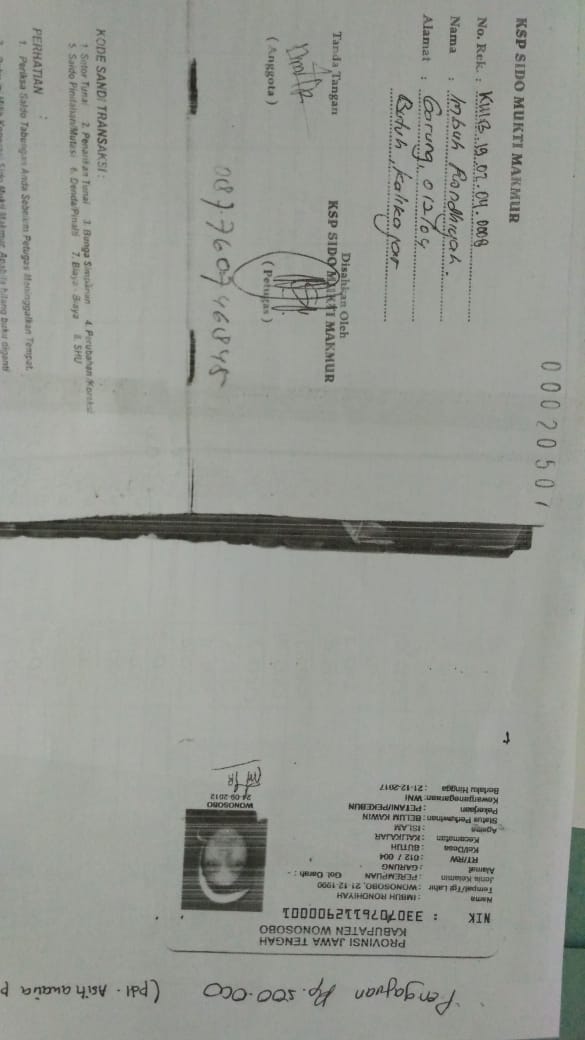 00020507
KSP SIDO MUKTI MAKMUR
No. Rek. : KMB.19.07.04.0008
Nama : Imbuh Rondhiyah.
Alamat : Garung, 012/04
Butuh, Kalikajar
Tanda Tangan
( Anggota )
Disahkan Oleh
KSP SIDO MUKTI MAKMUR
( Petugas )
KODE SANDI TRANSAKSI :
1. Setor Tunai 2. Penarikan Tunai 3. Bunga Simpanan 4. Perubahan /Koreksi
5. Saldo Pindahan/Mutasi 6. Denda/Pinalti 7. Biaya - Biaya 8. SHU
PERHATIAN :
1. Periksa Saldo Tabungan Anda Sebelum Petugas Meninggalkan Tempat.
PROVINSI JAWA TENGAH
KABUPATEN WONOSOBO
NIK : 3307076112900001
Nama : IMBUH RONDHIYAH
Tempat/Tgl Lahir : WONOSOBO, 21-12-1990
Jenis Kelamin : PEREMPUAN Gol. Darah : -
Alamat : GARUNG
RT/RW : 012 / 004
Kel/Desa : BUTUH
Kecamatan : KALIKAJAR
Agama : ISLAM
Status Perkawinan: BELUM KAWIN
Pekerjaan : PETANI/PEKEBUN
Kewarganegaraan: WNI
Berlaku Hingga : 21-12-2017
WONOSOBO
24-09-2012
Pengajuan Rp. 500.000